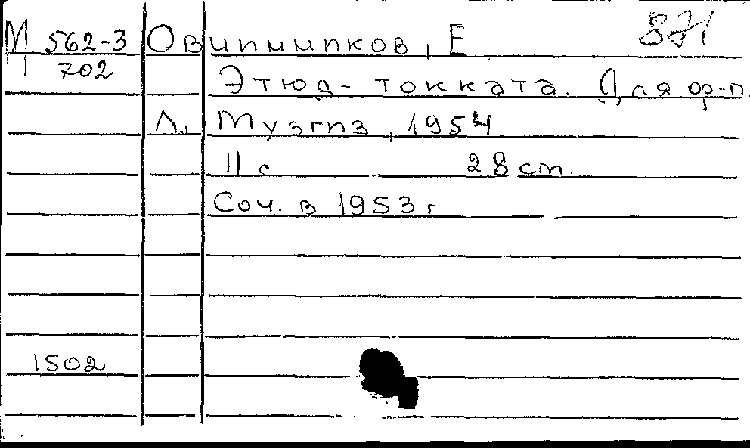 М 562-3 Овчинников, Е. 871
702 Этюд-токката. Для ф-п.
Л., Музгиз, 1954
11 с 28 cm.
Соч. в 1953 г
1502